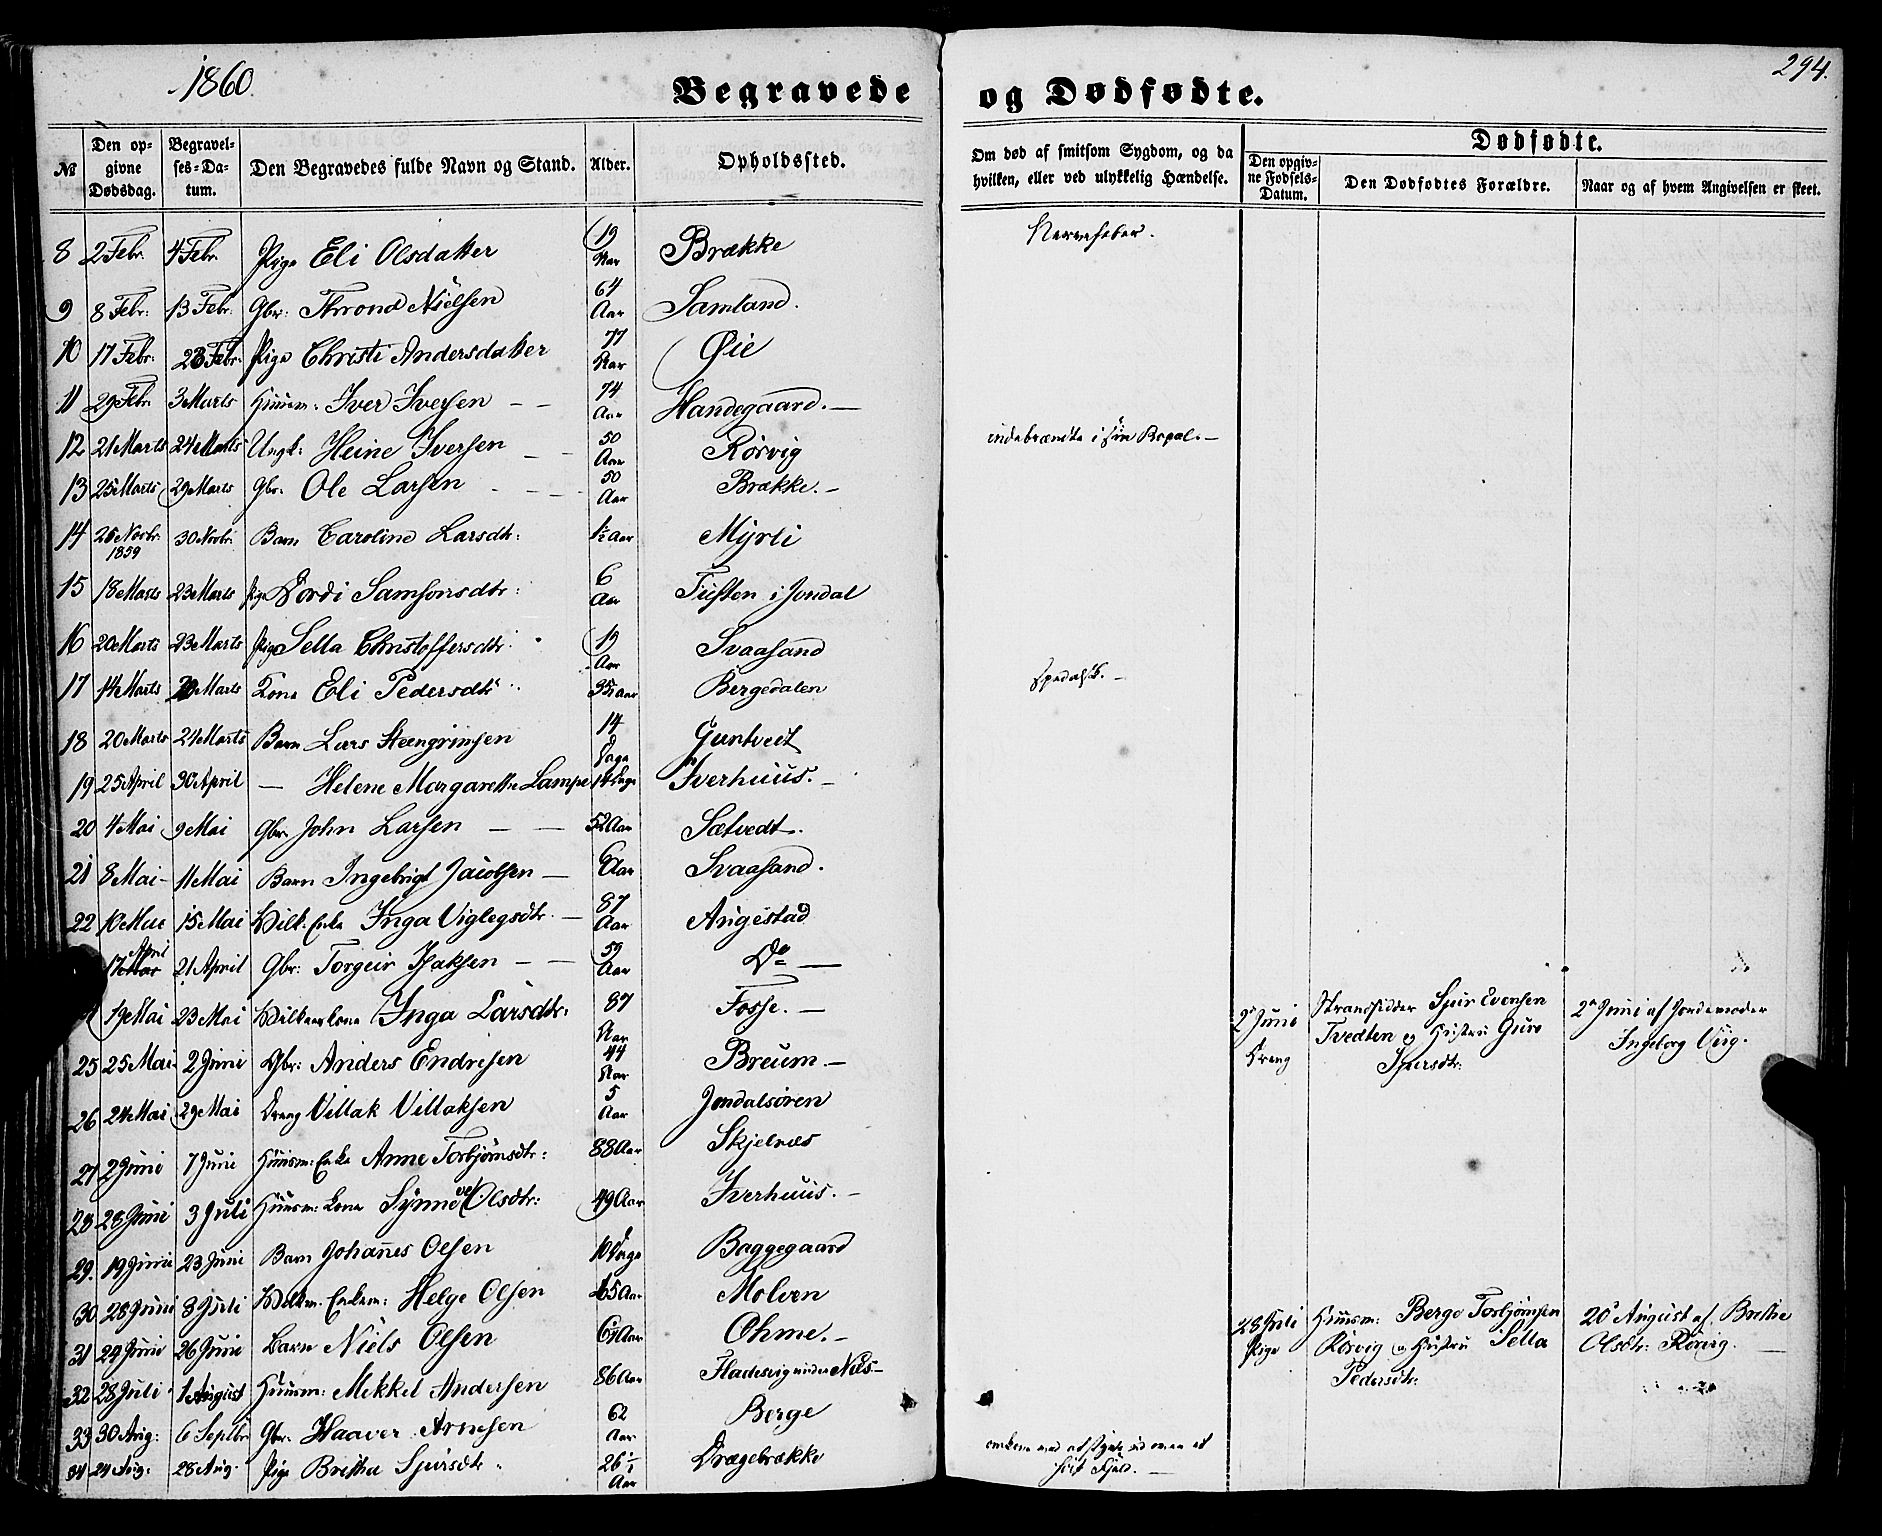 1860.
294.
Begravede og Dødfødte.
№ | Den opgivne Dødsdag. | Begravelses-Datum. | Den Begravedes fulde Navn og Stand. | Alder. | Opholdssted. | Om død af smitsom Sygdom, og da hvilken, eller ved ulykkelig Hændelse. | Dødfødte. | Den opgivne Fødsels-Datum. | Den Dødfødtes Forældre. | Naar og af hvem Angivelsen er skeet.
8 2 Febr. 4 Febr. Pige Eli Olsdatter 19 Aar Brække Nervefeber.
9 8 Febr: 13 Febr. Gbr: Thrond Nielsen 64 Aar Samland.
10 17 Febr. 28 Febr: Pige Christi Andersdatter 77 Aar Øie
11 29 Febr. 3 Marts Huusm: Iver Iversen — — 74 Aar Handegaard. —
12 21 Marts 24 Marts Ungk: Heine Iversen — — 50 Aar Rørvig indebrændte i sin Bopæl. —
13 25 Marts 29 Marts Gbr: Ole Larsen 50 Aar Brække. —
14 26 Novbr. 1859 30 Novbr. Barn Caroline Larsdtr: 1½ Aar Myrli
15 18 Marts 23 Marts Pige Dordi Samsonsdtr: 6 Aar Tuften i Jondal
16 20 Marts 23 Marts Pige Sella Christoffersdtr: 19 Aar Svaasand
17 14 Marts Marts Kone Eli Pedersdtr 35½ Aar Bergedalen spedalsk. —
18 20 Marts 21 Marts Barn Lars Steengrimsen 14 Dage Guntveit
19 25 April 30 April — Helene Margarethe Lampe 14 Dage Iverhuus. —
20 4 Mai 9 Mai Gbr. John Larsen — — 52 Aar Sætvedt.
21 8 Mai 11 Mai Barn Ingebrigt Jacobsen — Aar Svaasand.
22 10 Mai 15 Mai Vilk. Enke Inga Viglegsdtr. — 87 Aar Augestad
17 April 21 April Gbr: Torgeir Isaksen — — 59 Aar Do —
19 Mai 23 Mai Kone Inga Larsdtr: 87 Aar Fosse. —
2 Juni Dreng Strandsidder Sjur Evensen Tvedten og Hustru Guro Sjursdtr: 2 Juni af Jordemoder Ingeborg Vig.
25 25 Mai 2 Juni Gbr: Anders Endresen 44 Aar Breum. —
26 24 Mai 29 Mai Dreng Villak Villaksen 5 Aar Jondalsøren
27 2 Juni 7 Juni Huusm: Enke Anne Torbjørnsdtr: 88 Aar Skjelnæs
28 28 Juni 3 Juli Huusm: Kone Synneve Olsdtr: 49 Aar Iverhuus. —
29. 19 Juni 23 Juni Barn Johannes Olsen 10 Dage Baggegaard
30 28 Juni 8 Juli Enkem: Helge Olsen 65 Aar Molven
31 24 Juni 26 Juni Barn Niels Olsen Aar Ohme. —
28 Juli Pige Huusm: Berge Torbjørnsen Rørvig og Hustru Sella Pedersdtr: 20 August af Brithe Olsdtr: Rørvig. —
32 28 Juli 1 August Huusm: Mikkel Andersen 86 Aar Fladesvig under Næs —
33 30 Aug: 6 Septbr. Gbr. Haaver Arnesen 62 Aar Berge
34 24 Aug: 28 Aug. Pige Britha Sjursdtr. 26 Aar Drægebrække omkom ved at